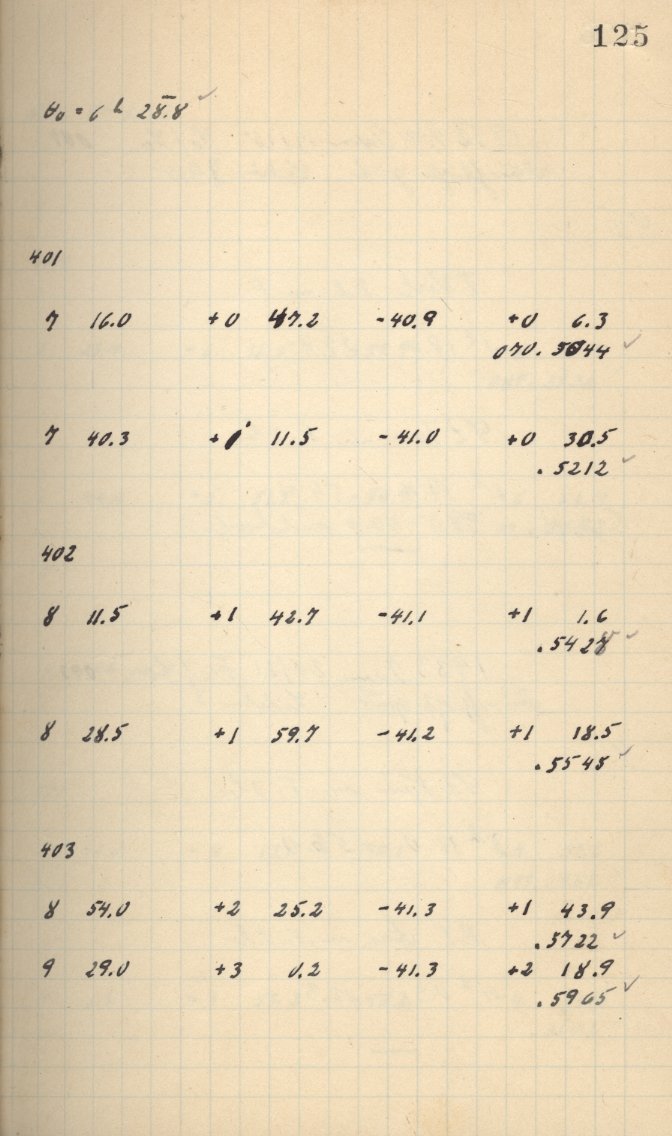 125
θ₀ = 6 h 28.8 ✓
401
7 16.0 +0 47.2 -40.9 +0 6.3
070.5044 ✓
7 40.3 +1 11.5 -41.0 +0 30.5
.5212 ✓
402
8 11.5 +1 42.7 -41.1 +1 1.6
.5428 ✓
8 28.5 +1 59.7 -41.2 +1 18.5
.5545 ✓
403
8 54.0 +2 25.2 -41.3 +1 43.9
.5722 ✓
9 29.0 +3 0.2 -41.3 +2 18.9
.5965 ✓